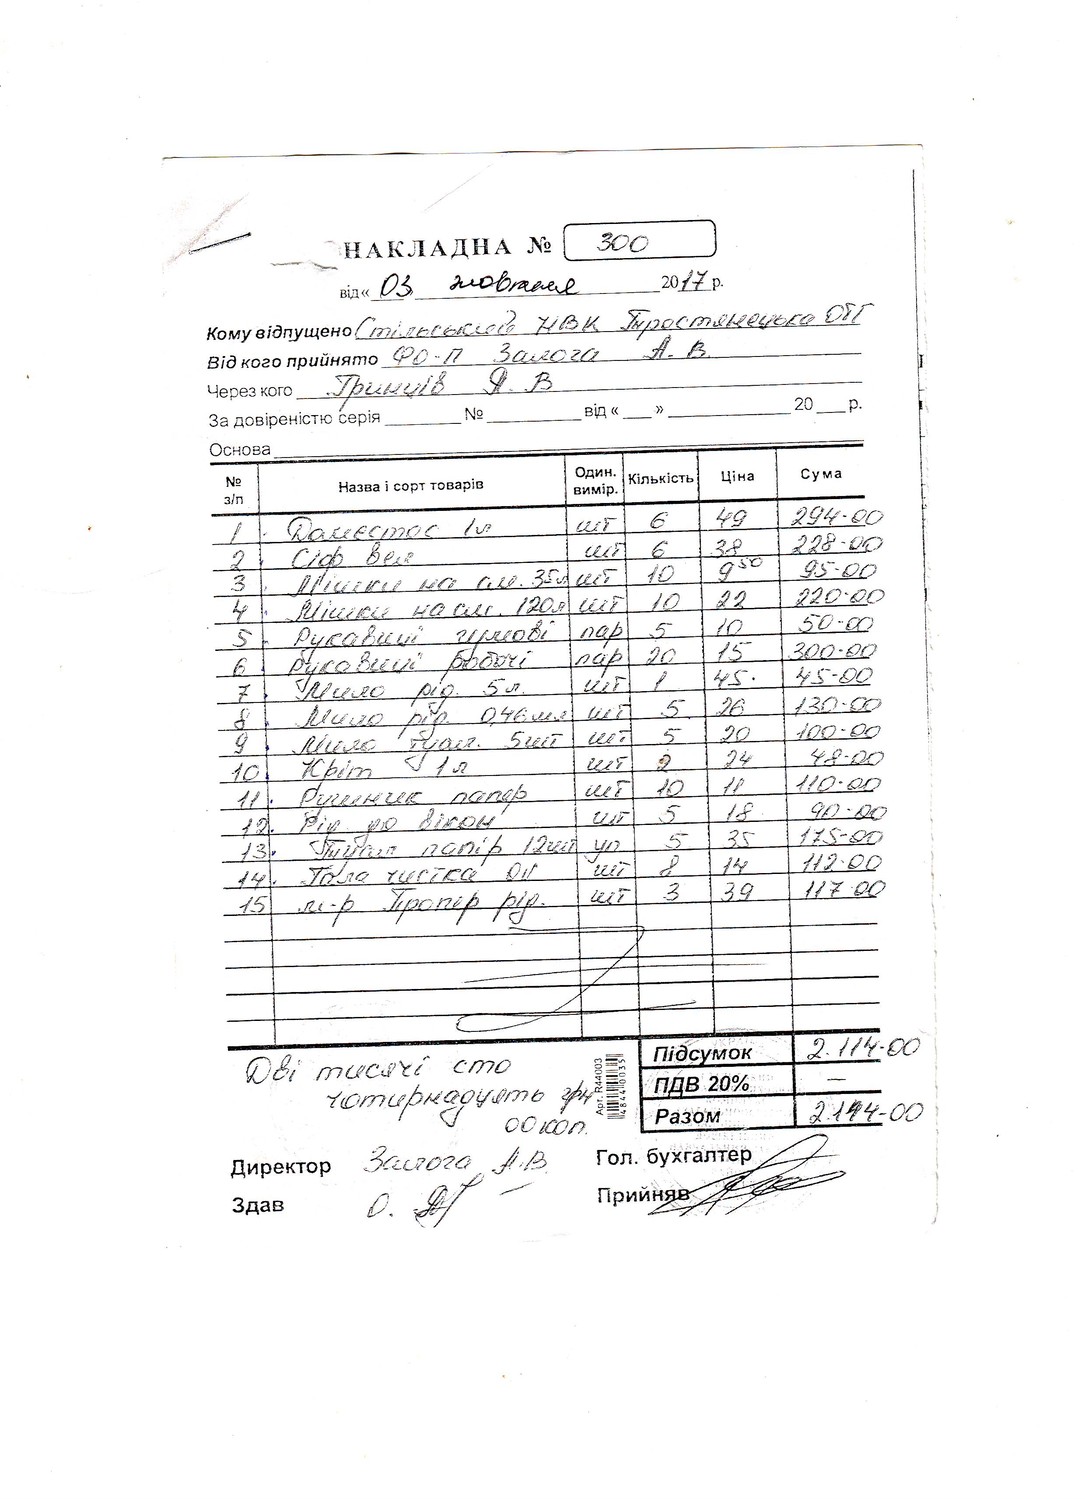 НАКЛАДНА № 300
від « 03 жовтня 2017 р.
Кому відпущено Стільський НВК Тростянецька ОТГ
Від кого прийнято ФО-П Залога А. В
Через кого Гринців Я. В
За довіреністю серія № від « » 20 р.
Основа
№ з/п Назва і сорт товарів Один. вимір. Кількість Ціна Сума
1. Доместос 1л шт 6 49 294-00
2. Сіф вел шт 6 38 228-00
3. Мішки на см. 35л шт 10 9 50 95-00
4. Мішки на см. 120л шт 10 22 220-00
5. Рукавиці гумові пар 5 10 50-00
6. Рукавиці робочі пар 20 15 300-00
7. Мило рід. 5л. шт 1 45. 45-00
8. Мило рід. 0,46мл шт 5 26 130-00
9. Мило туал. 5шт шт 5 20 100-00
10. Кріт 1л шт 2 24 48-00
11. Рушничк папер шт 10 11 110-00
12. Рід до вікон шт 5 18 90-00
13. Туал папір 12шт уп 5 35 175-00
14. чистка шт 8 14 112-00
15 м-р Пропер рід. шт 3 39 117-00
Підсумок 2.114-00
ПДВ 20% —
Разом 2.114-00
Дві тисячі сто
чотирнадцять грн
00 коп.
Арт. R44003
Директор Залога А.В. Гол. бухгалтер
Здав Прийняв